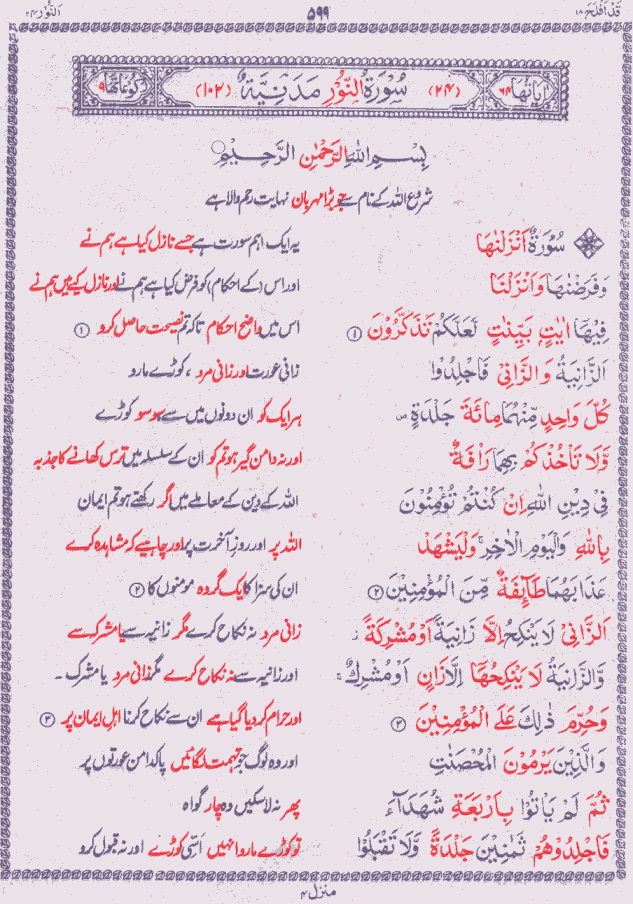 قَدْ اَفْلَحَ ١٨ ۵۹۹ اَلنُّوْر ٢٤
اٰيَاتُهَا ٦٤ (٢٤) سُوْرَةُ النُّوْرِ مَدَنِيَّةٌ (١٠٢) رُكُوْعَاتُهَا ٩
بِسْمِ اللّٰهِ الرَّحْمٰنِ الرَّحِيْمِ
شروع اللہ کے نام سے جو بڑا مہربان نہایت رحم والا ہے
سُوْرَةٌ اَنْزَلْنٰهَا یہ ایک اہم سورت ہے جسے نازل کیا ہے ہم نے
وَفَرَضْنٰهَا وَاَنْزَلْنَا اور اس (کے احکام) کو فرض کیا ہے ہم نے اور نازل کیے ہیں ہم نے
فِيْهَا اٰيٰتٍۭ بَيِّنٰتٍ لَّعَلَّكُمْ تَذَكَّرُوْنَ ① اس میں واضح احکام تاکہ تم نصیحت حاصل کرو ①
اَلزَّانِيَةُ وَالزَّانِيْ فَاجْلِدُوْا زانی عورت اور زانی مرد ، کوڑے مارو
كُلَّ وَاحِدٍ مِّنْهُمَا مِائَةَ جَلْدَةٍ ۪ ہر ایک کو ان دونوں میں سے سو سو کوڑے
وَّلَا تَاْخُذْكُمْ بِهِمَا رَاْفَةٌ اور نہ دامن گیر ہو تم کو ان کے سلسلہ میں ترس کھانے کا جذبہ
فِيْ دِيْنِ اللّٰهِ اِنْ كُنْتُمْ تُؤْمِنُوْنَ اللہ کے دین کے معاملے میں اگر رکھتے ہو تم ایمان
بِاللّٰهِ وَالْيَوْمِ الْاٰخِرِ ۚ وَلْيَشْهَدْ اللہ پر اور روزِ آخرت پر اور چاہیے کہ مشاہدہ کرے
عَذَابَهُمَا طَآئِفَةٌ مِّنَ الْمُؤْمِنِيْنَ ② ان کی سزا کا ایک گروہ مومنوں کا ②
اَلزَّانِيْ لَا يَنْكِحُ اِلَّا زَانِيَةً اَوْ مُشْرِكَةً ۡ زانی مرد نہ نکاح کرے مگر زانیہ سے یا مشرکہ سے
وَّالزَّانِيَةُ لَا يَنْكِحُهَآ اِلَّا زَانٍ اَوْ مُشْرِكٌ ۚ اور زانیہ سے نہ نکاح کرے مگر زانی مرد یا مشرک ۔
وَحُرِّمَ ذٰلِكَ عَلَى الْمُؤْمِنِيْنَ ③ اور حرام کر دیا گیا ہے ان سے نکاح کرنا اہلِ ایمان پر ③
وَالَّذِيْنَ يَرْمُوْنَ الْمُحْصَنٰتِ اور وہ لوگ جو تہمت لگائیں پاکدامن عورتوں پر
ثُمَّ لَمْ يَاْتُوْا بِاَرْبَعَةِ شُهَدَآءَ پھر نہ لاسکیں وہ چار گواہ
فَاجْلِدُوْهُمْ ثَمٰنِيْنَ جَلْدَةً وَّلَا تَقْبَلُوْا تو کوڑے مارو انہیں اسّی کوڑے اور نہ قبول کرو
منزل ٤